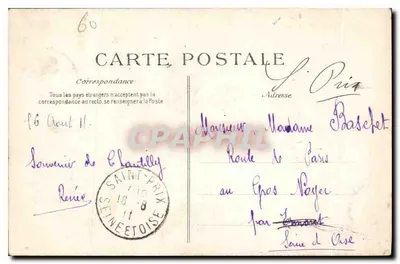 60
CARTE POSTALE
Correspondance
Tous les pays étrangers n'acceptent pas la
correspondance au recto. se renseigner à la Poste
Adresse
St Prix
16 Aout 11.
Souvenir de Chantilly
Renée
Monsieur Madame Baschet
Route de Paris
au Gros Noyer
par
Seine et Oise
SAINT-PRIX
16-8
11
SEINE ET OISE
CPARAMA